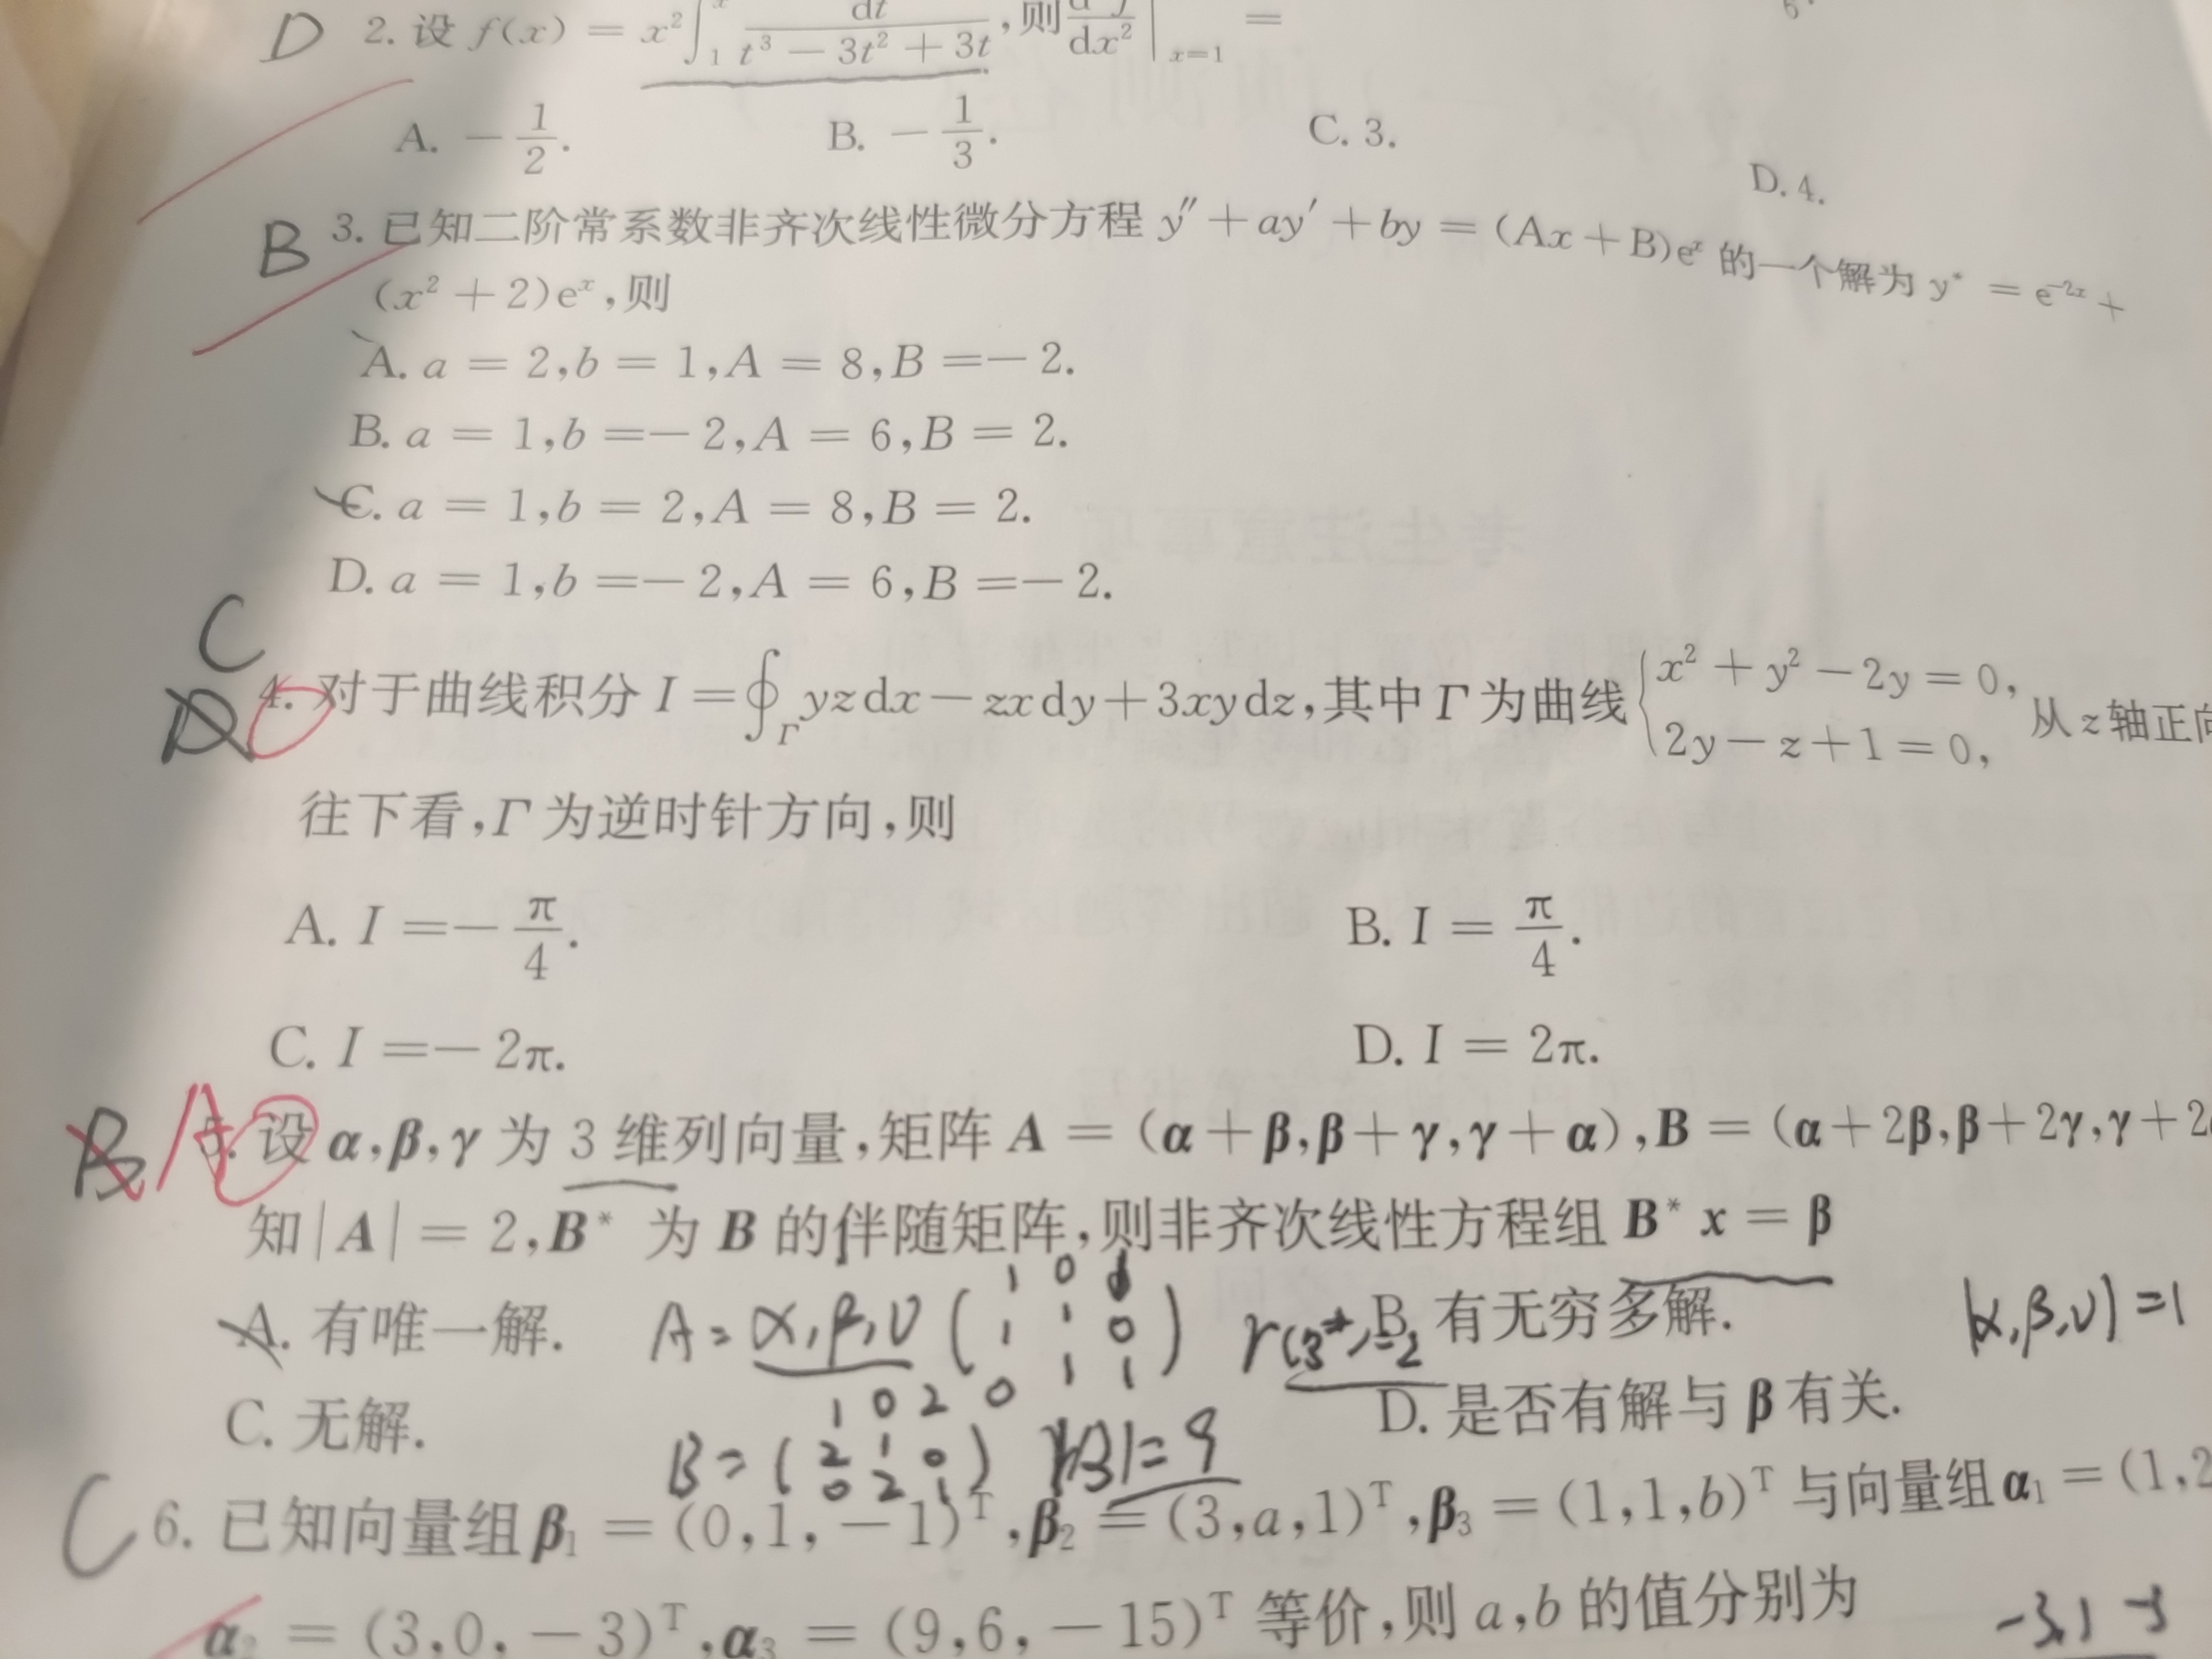 D 2. 设 f(x) = x²∫₁ˣ dt/(t³ − 3t² + 3t), 则 d²f/dx²|ₓ₌₁ =
A. −1/2. B. −1/3. C. 3. D. 4.
B 3. 已知二阶常系数非齐次线性微分方程 y″ + ay′ + by = (Ax + B)eˣ 的一个解为 y* = e⁻²ˣ +
(x² + 2)eˣ, 则
A. a = 2, b = 1, A = 8, B = −2.
B. a = 1, b = −2, A = 6, B = 2.
C. a = 1, b = 2, A = 8, B = 2.
D. a = 1, b = −2, A = 6, B = −2.
C
D 4. 对于曲线积分 I = ∮_Γ yzdx − zxdy + 3xydz, 其中 Γ 为曲线 { x² + y² − 2y = 0, 2y − z + 1 = 0, 从 z 轴正向
往下看, Γ 为逆时针方向, 则
A. I = −π/4. B. I = π/4.
C. I = −2π. D. I = 2π.
B A 5. 设 α, β, γ 为 3 维列向量, 矩阵 A = (α + β, β + γ, γ + α), B = (α + 2β, β + 2γ, γ + 2
知 |A| = 2, B* 为 B 的伴随矩阵, 则非齐次线性方程组 B* x = β
A. 有唯一解. B. 有无穷多解.
A = α, β, γ ( 1 0 1
1 1 0
0 1 1 )
|α, β, γ| = 1
C. 无解. D. 是否有解与 β 有关.
B = ( 1 0 2
2 1 0
0 2 1 ) |B| = 9
C 6. 已知向量组 β₁ = (0, 1, −1)ᵀ, β₂ = (3, a, 1)ᵀ, β₃ = (1, 1, b)ᵀ 与向量组 α₁ = (1, 2
α₂ = (3, 0, −3)ᵀ, α₃ = (9, 6, −15)ᵀ 等价, 则 a, b 的值分别为